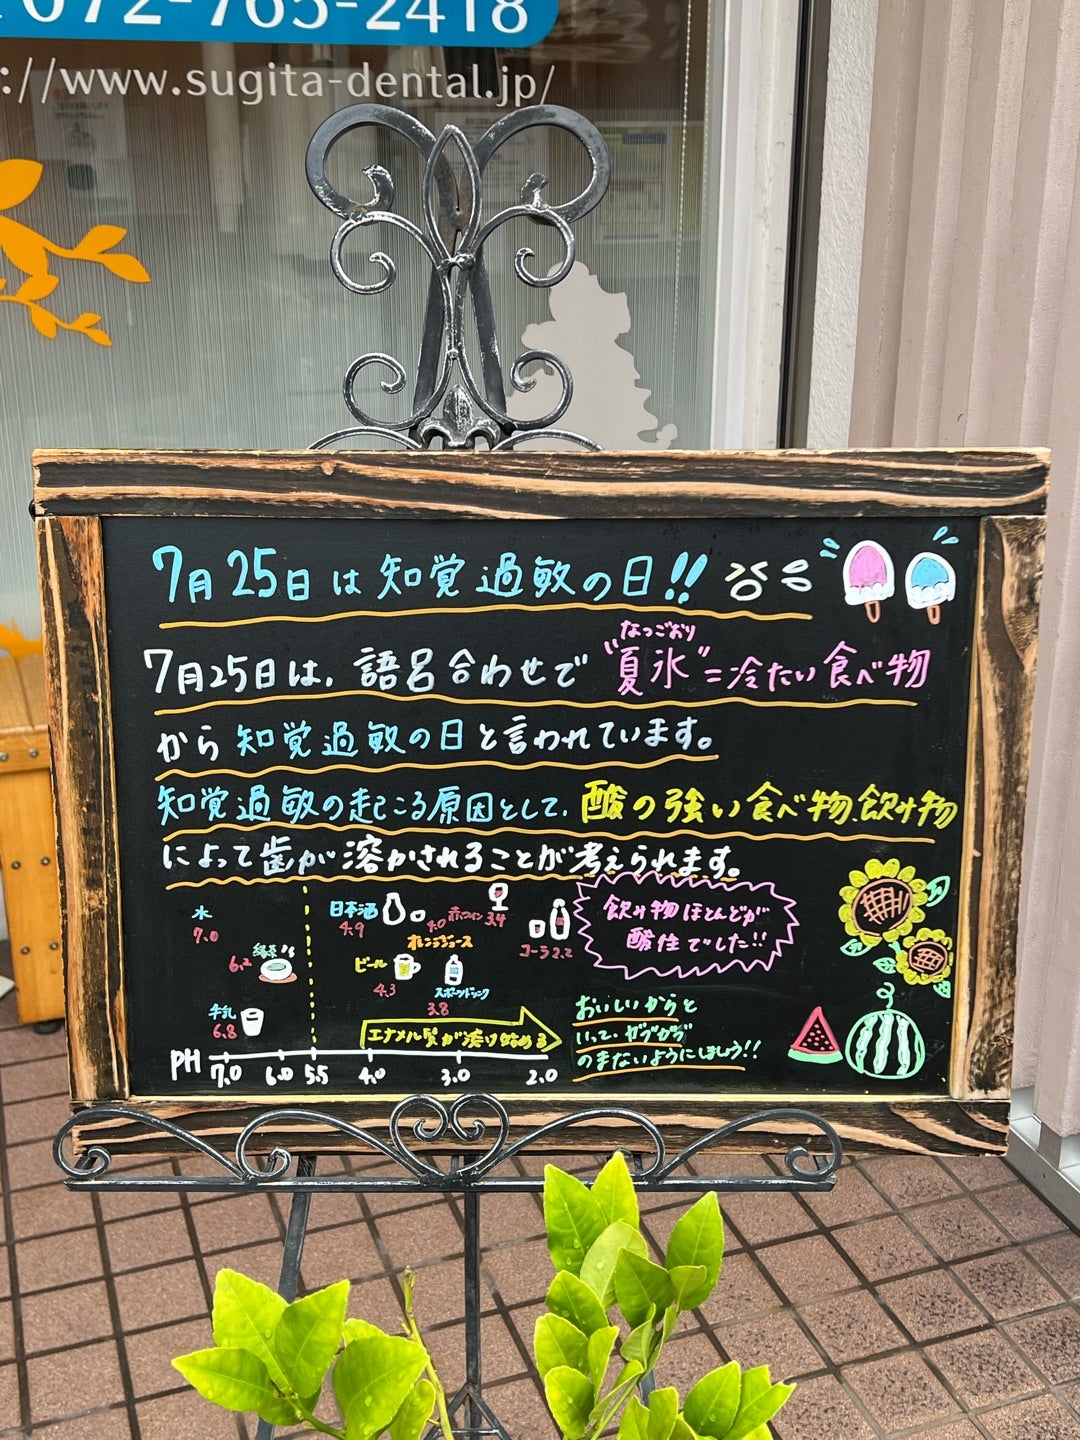 072-765-2418
://www.sugita-dental.jp/
7月25日は知覚過敏の日!!
なつごおり
7月25日は、語呂合わせで"夏氷"=冷たい食べ物
から知覚過敏の日と言われています。
知覚過敏の起こる原因として、酸の強い食べ物、飲み物
によって歯が溶かされることが考えられます。
水
7.0
緑茶
6.2
牛乳
6.8
日本酒
4.9
赤ワイン 3.4
オレンジジュース
4.0
コーラ 2.2
ビール
4.3
スポーツドリンク
3.8
飲み物ほとんどが
酸性でした!!
エナメル質が溶け始める
PH 7.0 6.0 5.5 4.0 3.0 2.0
おいしいからと
いって、ガブガブ
のまないようにしましょう!!